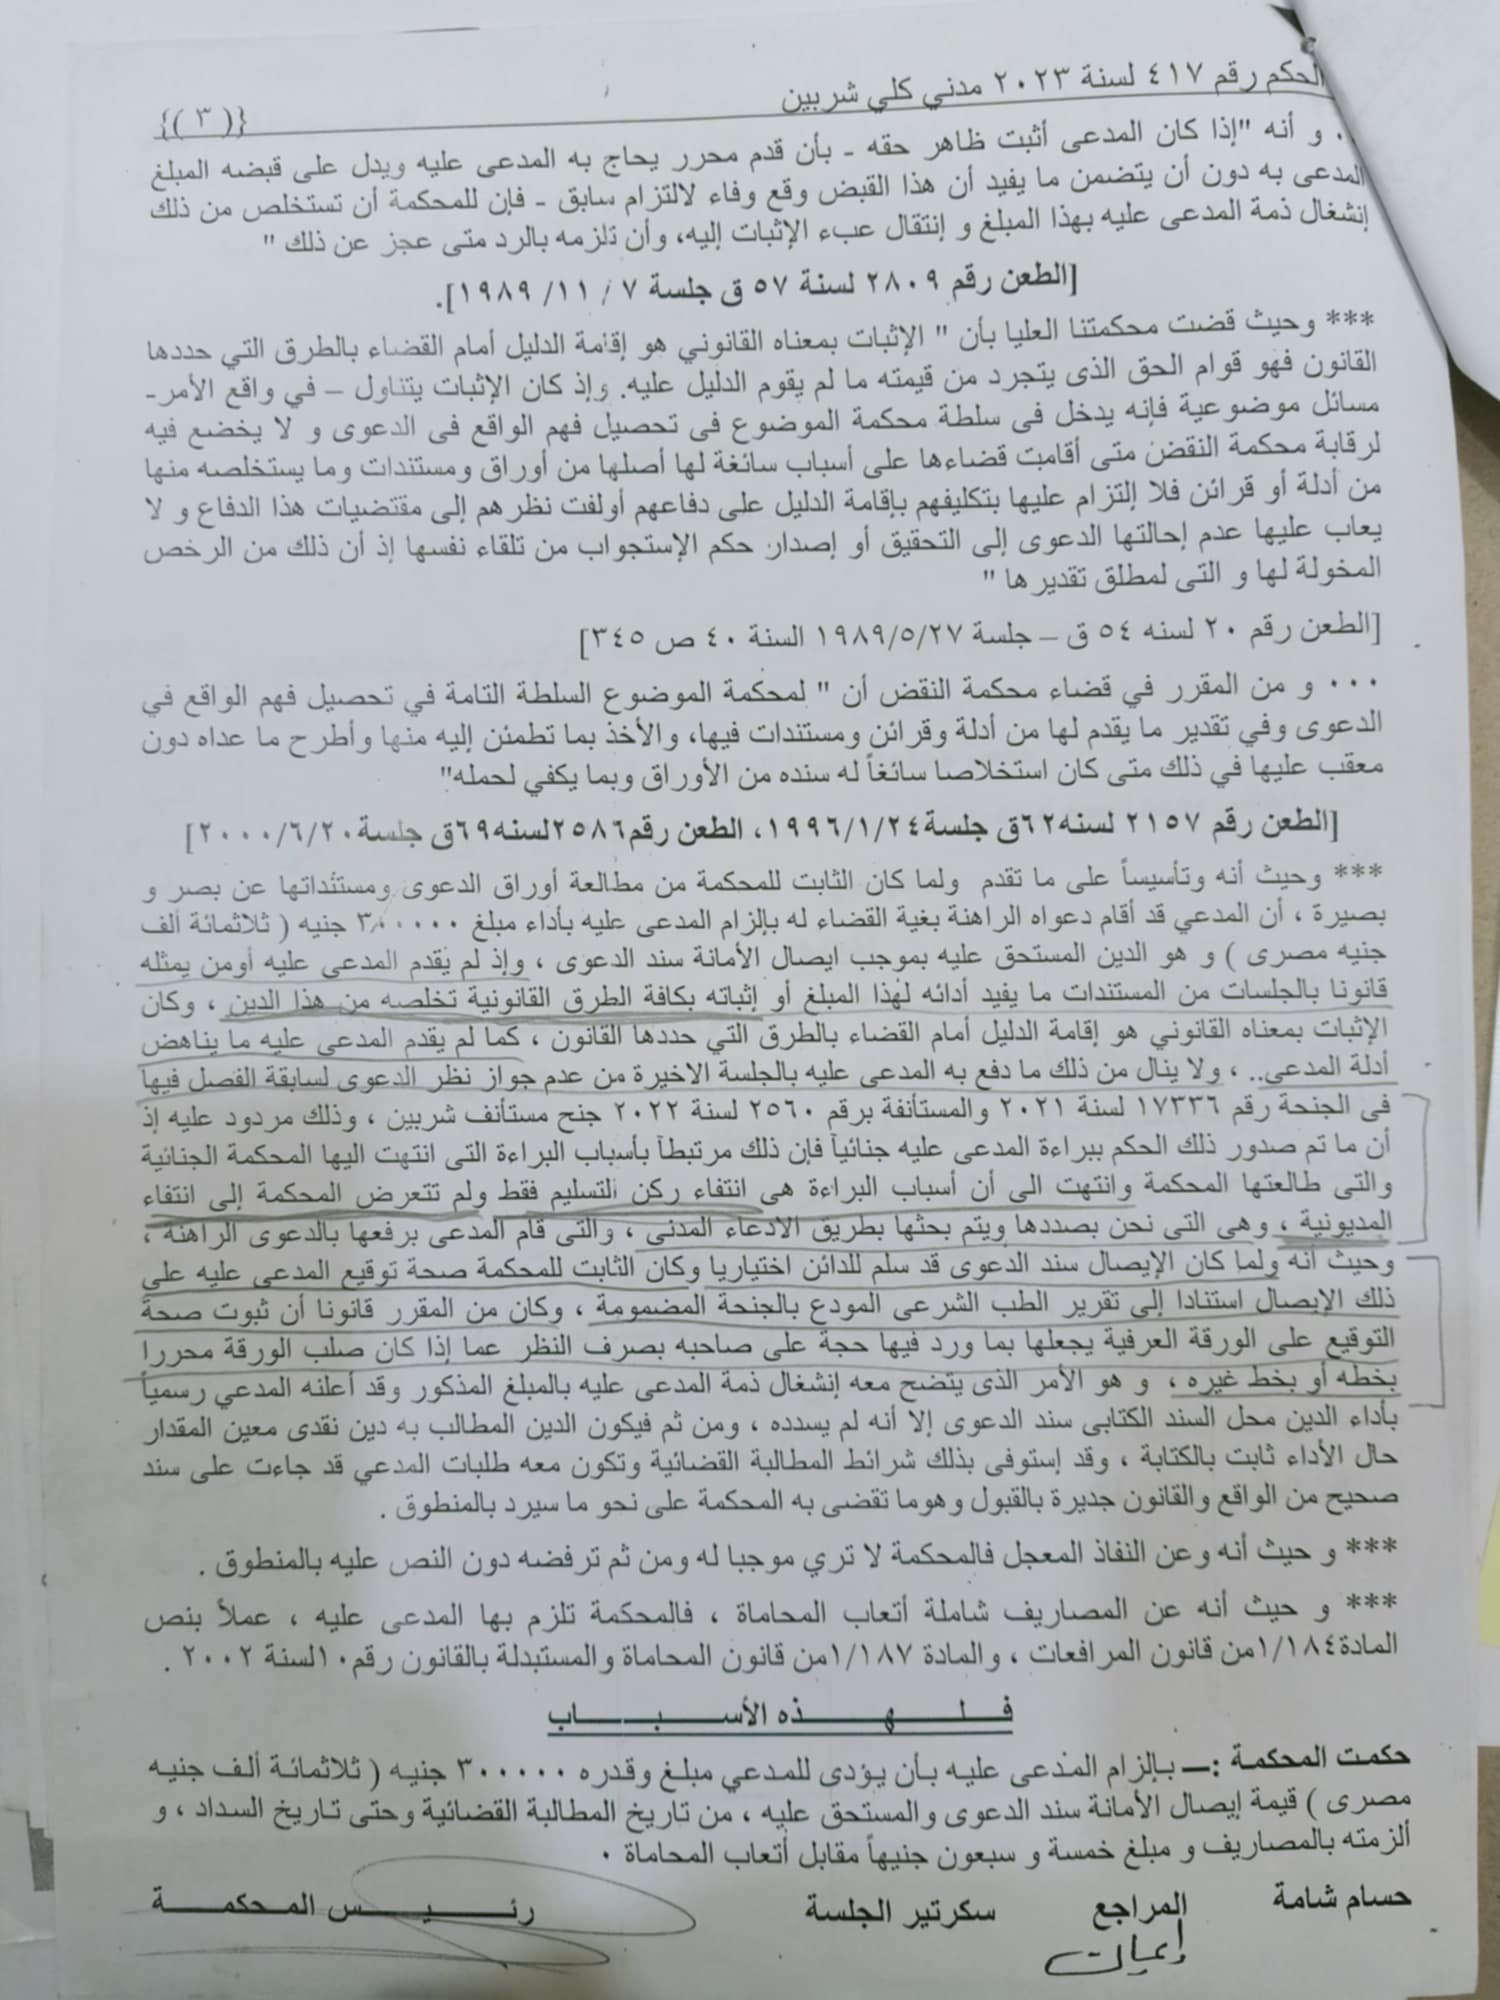 الحكم رقم ٤١٧ لسنة ٢٠٢٣ مدني كلي شربين
{( ٣ )}
.. و أنه "إذا كان المدعى أثبت ظاهر حقه - بأن قدم محرر يحاج به المدعى عليه ويدل على قبضه المبلغ
المدعى به دون أن يتضمن ما يفيد أن هذا القبض وقع وفاء لالتزام سابق - فإن للمحكمة أن تستخلص من ذلك
إنشغال ذمة المدعى عليه بهذا المبلغ و إنتقال عبء الإثبات إليه، وأن تلزمه بالرد متى عجز عن ذلك "
[الطعن رقم ٢٨٠٩ لسنة ٥٧ ق جلسة ٧ / ١١/ ١٩٨٩].
*** وحيث قضت محكمتنا العليا بأن " الإثبات بمعناه القانوني هو إقامة الدليل أمام القضاء بالطرق التي حددها
القانون فهو قوام الحق الذى يتجرد من قيمته ما لم يقوم الدليل عليه. وإذ كان الإثبات يتناول – في واقع الأمر-
مسائل موضوعية فإنه يدخل فى سلطة محكمة الموضوع فى تحصيل فهم الواقع فى الدعوى و لا يخضع فيه
لرقابة محكمة النقض متى أقامت قضاءها على أسباب سائغة لها أصلها من أوراق ومستندات وما يستخلصه منها
من أدلة أو قرائن فلا إلتزام عليها بتكليفهم بإقامة الدليل على دفاعهم أولفت نظرهم إلى مقتضيات هذا الدفاع و لا
يعاب عليها عدم إحالتها الدعوى إلى التحقيق أو إصدار حكم الإستجواب من تلقاء نفسها إذ أن ذلك من الرخص
المخولة لها و التى لمطلق تقديرها "
[الطعن رقم ٢٠ لسنه ٥٤ ق – جلسة ١٩٨٩/٥/٢٧ السنة ٤٠ ص ٣٤٥]
٠٠٠ و من المقرر في قضاء محكمة النقض أن " لمحكمة الموضوع السلطة التامة في تحصيل فهم الواقع في
الدعوى وفي تقدير ما يقدم لها من أدلة وقرائن ومستندات فيها، والأخذ بما تطمئن إليه منها وأطرح ما عداه دون
معقب عليها في ذلك متى كان استخلاصا سائغاً له سنده من الأوراق وبما يكفي لحمله"
[الطعن رقم ٢١٥٧ لسنه٦٢ق جلسة١٩٩٦/١/٢٤، الطعن رقم٢٥٨٦لسنه٦٩ق جلسة٢٠٠٠/٦/٢٠]
*** وحيث أنه وتأسيساً على ما تقدم ولما كان الثابت للمحكمة من مطالعة أوراق الدعوى ومستنداتها عن بصر و
بصيرة ، أن المدعي قد أقام دعواه الراهنة بغية القضاء له بإلزام المدعى عليه بأداء مبلغ ٣٠٠٠٠٠ جنيه ( ثلاثمائة ألف
جنيه مصرى ) و هو الدين المستحق عليه بموجب ايصال الأمانة سند الدعوى ، وإذ لم يقدم المدعى عليه أومن يمثله
قانونا بالجلسات من المستندات ما يفيد أدائه لهذا المبلغ أو إثباته بكافة الطرق القانونية تخلصه من هذا الدين ، وكان
الإثبات بمعناه القانوني هو إقامة الدليل أمام القضاء بالطرق التي حددها القانون ، كما لم يقدم المدعى عليه ما يناهض
أدلة المدعى.. ، ولا ينال من ذلك ما دفع به المدعى عليه بالجلسة الاخيرة من عدم جواز نظر الدعوى لسابقة الفصل فيها
فى الجنحة رقم ١٧٣٣٦ لسنة ٢٠٢١ والمستأنفة برقم ٢٥٦٠ لسنة ٢٠٢٢ جنح مستأنف شربين ، وذلك مردود عليه إذ
أن ما تم صدور ذلك الحكم ببراءة المدعى عليه جنائياً فإن ذلك مرتبطاً بأسباب البراءة التى انتهت اليها المحكمة الجنائية
والتى طالعتها المحكمة وانتهت الى أن أسباب البراءة هى انتفاء ركن التسليم فقط ولم تتعرض المحكمة إلى انتفاء
المديونية ، وهى التى نحن بصددها ويتم بحثها بطريق الادعاء المدنى ، والتى قام المدعى برفعها بالدعوى الراهنة ،
وحيث أنه ولما كان الإيصال سند الدعوى قد سلم للدائن اختياريا وكان الثابت للمحكمة صحة توقيع المدعى عليه على
ذلك الإيصال استنادا إلى تقرير الطب الشرعى المودع بالجنحة المضمومة ، وكان من المقرر قانونا أن ثبوت صحة
التوقيع على الورقة العرفية يجعلها بما ورد فيها حجة على صاحبه بصرف النظر عما إذا كان صلب الورقة محررا
بخطه أو بخط غيره ، و هو الأمر الذى يتضح معه إنشغال ذمة المدعى عليه بالمبلغ المذكور وقد أعلنه المدعي رسمياً
بأداء الدين محل السند الكتابى سند الدعوى إلا أنه لم يسدده ، ومن ثم فيكون الدين المطالب به دين نقدى معين المقدار
حال الأداء ثابت بالكتابة ، وقد إستوفى بذلك شرائط المطالبة القضائية وتكون معه طلبات المدعي قد جاءت على سند
صحيح من الواقع والقانون جديرة بالقبول وهوما تقضى به المحكمة على نحو ما سيرد بالمنطوق .
*** و حيث أنه وعن النفاذ المعجل فالمحكمة لا تري موجبا له ومن ثم ترفضه دون النص عليه بالمنطوق .
*** و حيث أنه عن المصاريف شاملة أتعاب المحاماة ، فالمحكمة تلزم بها المدعى عليه ، عملاً بنص
المادة١/١٨٤من قانون المرافعات ، والمادة ١/١٨٧من قانون المحاماة والمستبدلة بالقانون رقم١٠لسنة ٢٠٠٢ .
فـلـهـذه الأسـبـاب
حكمت المحكمة :ــ بإلزام المدعى عليه بأن يؤدى للمدعي مبلغ وقدره ٣٠٠٠٠٠ جنيه ( ثلاثمائة ألف جنيه
مصرى ) قيمة إيصال الأمانة سند الدعوى والمستحق عليه ، من تاريخ المطالبة القضائية وحتى تاريخ السداد ، و
ألزمته بالمصاريف و مبلغ خمسة و سبعون جنيهاً مقابل أتعاب المحاماة ٠
حسام شامة المراجع سكرتير الجلسة رئـيـس المـحـكـمـة